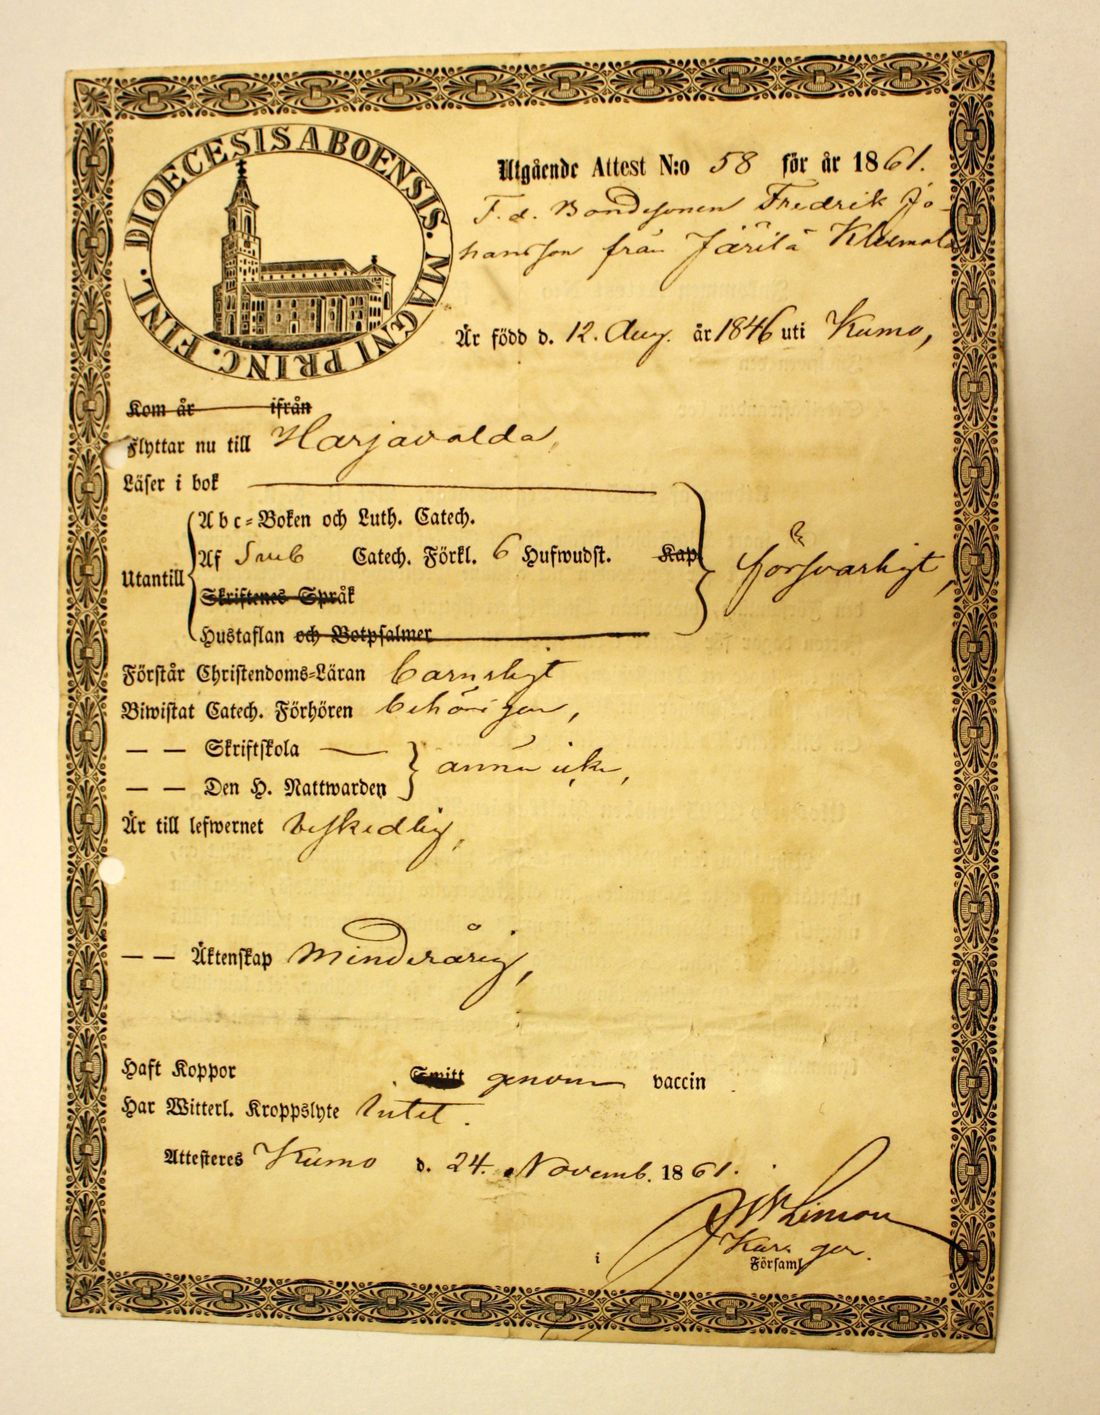 DIOECESIS ABOENSIS. MAGNI PRINC. FINL.
Utgående Attest N:o 58 för år 1861.
F. d. Bondesonen Fredrik Jo-
hansson från Järilä Klemola
Är född d. 12. Aug. år 1846 uti Kumo,
Kom år ifrån
Flyttar nu till Harjavalda,
Läser i bok
Abc-Boken och Luth. Catech.
Af Sveb Catech. Förkl. 6 Hufwudst. Kap
Utantill försvarligt,
Skriftenes Språk
Hustaflan och Botpsalmer
Förstår Christendoms-Läran barnsligt
Biwistat Catech. Förhören behörigen,
— — Skriftskola
— — Den H. Nattwarden ännu icke,
Är till lefwernet beskedlig,
— — Äktenskap Minderårig,
Haft Koppor Smitt genom vaccin
Har Witterl. Kroppslyte Intet.
Attesteres Kumo d. 24. Novemb. 1861.
i Församl